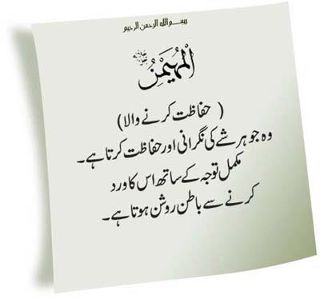 بسم اللہ الرحمن الرحیم
اَلْمُهَیْمِنُ
( حفاظت کرنے والا)
وہ جو ہر شے کی نگرانی اور حفاظت کرتا ہے۔
مکمل توجہ کے ساتھ اس کا ورد
کرنے سے باطن روشن ہوتا ہے۔